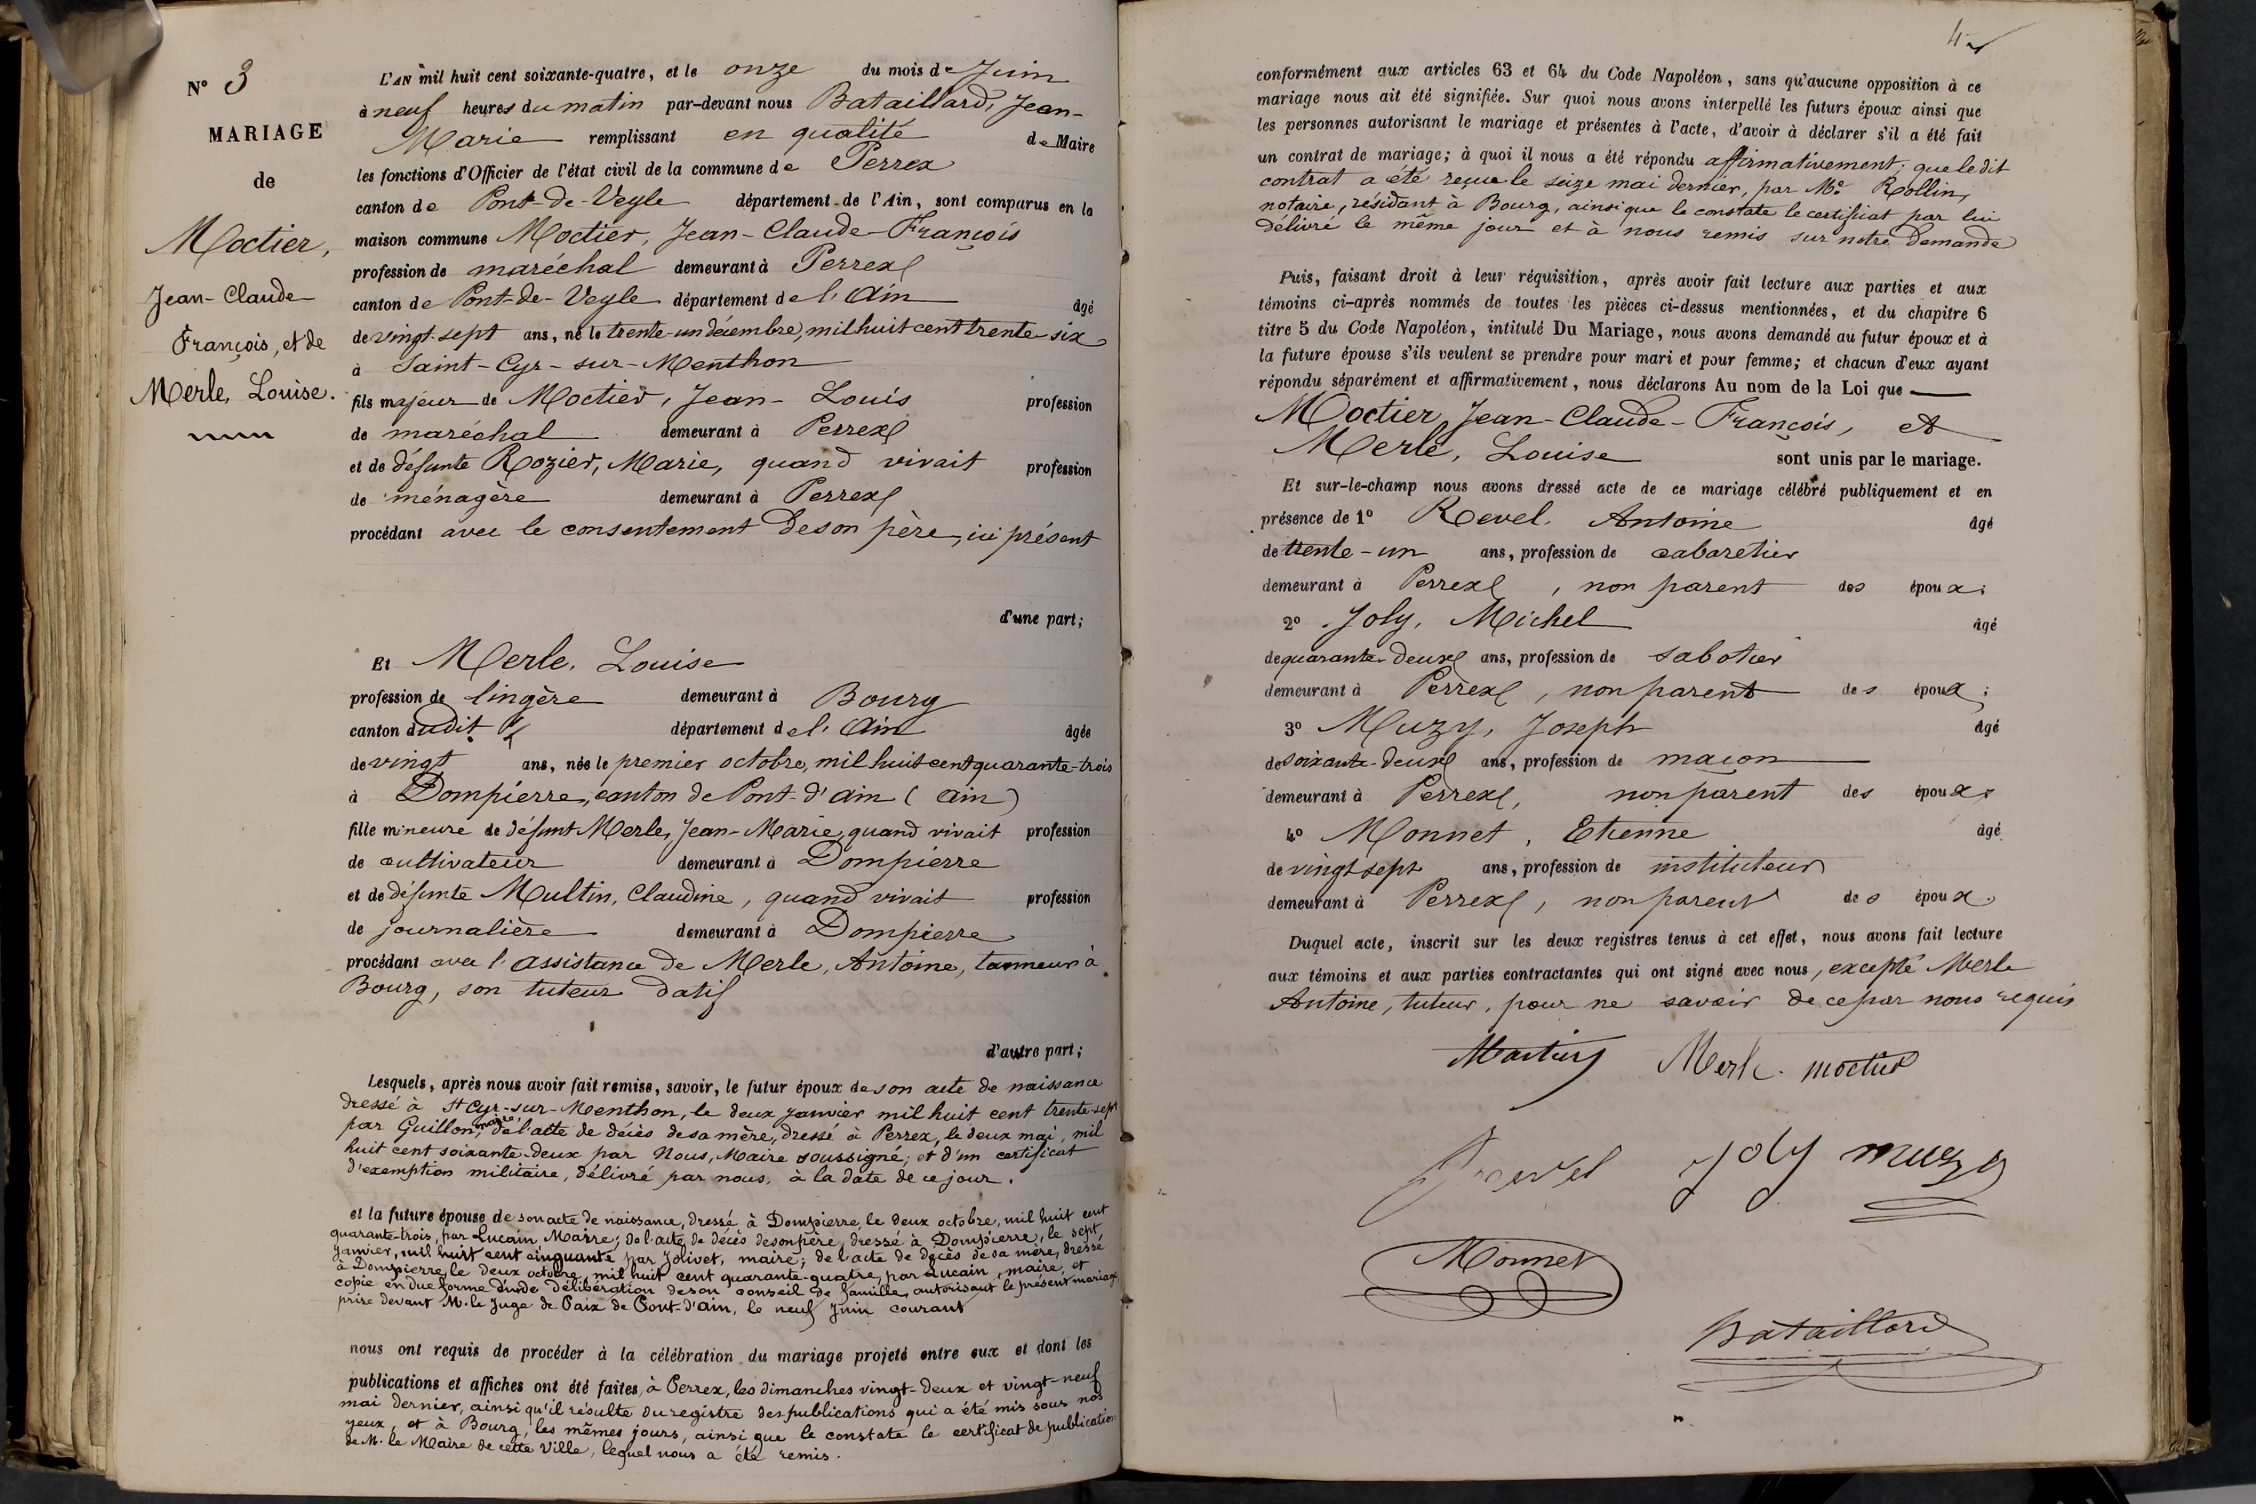 N° 3
MARIAGE
de
Moctier,
Jean-Claude
François, et de
Merle, Louise.
L'AN mil huit cent soixante-quatre, et le onze du mois de Juin
à neuf heures du matin par-devant nous Bataillard, Jean-
Marie remplissant en qualité de Maire
les fonctions d'Officier de l'état civil de la commune de Perrex
canton de Pont-de-Veyle département de l'Ain, sont comparus en la
maison commune Moctier, Jean-Claude-François
profession de maréchal demeurant à Perrex
canton de Pont-de-Veyle département de l'Ain âgé
de vingt-sept ans, né le trente-un décembre, mil huit cent trente-six
à Saint-Cyr-sur-Menthon
fils majeur de Moctier, Jean-Louis profession
de maréchal demeurant à Perrex
et de défunte Rozier, Marie, quand vivait profession
de ménagère demeurant à Perrex
procédant avec le consentement de son père, ici présent
d'une part;
Et Merle, Louise
profession de lingère demeurant à Bourg
canton dudit département de l'Ain âgée
de vingt ans, née le premier octobre, mil huit cent quarante-trois
à Dompierre, canton de Pont-d'Ain (Ain)
fille mineure de défunt Merle, Jean-Marie, quand vivait profession
de cultivateur demeurant à Dompierre
et de défunte Multin, Claudine, quand vivait profession
de journalière demeurant à Dompierre
procédant avec l'assistance de Merle, Antoine, tanneur à
Bourg, son tuteur datif
d'autre part;
Lesquels, après nous avoir fait remise, savoir, le futur époux de son acte de naissance
dressé à St Cyr-sur-Menthon, le deux janvier mil huit cent trente-sept
par Guillon, maire, de l'acte de décès de sa mère, dressé à Perrex, le deux mai, mil
huit cent soixante-deux par Nous, Maire soussigné; et d'un certificat
d'exemption militaire, délivré par nous, à la date de ce jour.
et la future épouse de son acte de naissance, dressé à Dompierre, le deux octobre, mil huit cent
quarante-trois, par Lucain Maire; de l'acte de décès de son père, dressé à Dompierre, le sept
janvier, mil huit cent cinquante par Jolivet, maire; de l'acte de décès de sa mère, dressé
à Dompierre, le deux octobre, mil huit cent quarante-quatre, par Lucain, maire, et
copie en due forme d'une délibération de son conseil de famille, autorisant le présent mariage
prise devant M. le Juge de Paix de Pont-d'Ain, le neuf Juin courant
nous ont requis de procéder à la célébration du mariage projeté entre eux et dont les
publications et affiches ont été faites, à Perrex, les dimanches vingt-deux et vingt-neuf
mai dernier, ainsi qu'il résulte du registre des publications qui a été mis sous nos
yeux, et à Bourg, les mêmes jours, ainsi que le constate le certificat de publication
de M. le Maire de cette Ville, lequel nous a été remis.
4
conformément aux articles 63 et 64 du Code Napoléon, sans qu'aucune opposition à ce
mariage nous ait été signifiée. Sur quoi nous avons interpellé les futurs époux ainsi que
les personnes autorisant le mariage et présentes à l'acte, d'avoir à déclarer s'il a été fait
un contrat de mariage; à quoi il nous a été répondu affirmativement, que ledit
contrat a été reçue le seize mai dernier, par Me. Rollin,
notaire, résidant à Bourg, ainsi que le constate le certificat par lui
délivré le même jour et à nous remis sur notre demande
Puis, faisant droit à leur réquisition, après avoir fait lecture aux parties et aux
témoins ci-après nommés de toutes les pièces ci-dessus mentionnées, et du chapitre 6
titre 5 du Code Napoléon, intitulé Du Mariage, nous avons demandé au futur époux et à
la future épouse s'ils veulent se prendre pour mari et pour femme; et chacun d'eux ayant
répondu séparément et affirmativement, nous déclarons Au nom de la Loi que
Moctier, Jean-Claude-François, et
Merle, Louise sont unis par le mariage.
Et sur-le-champ nous avons dressé acte de ce mariage célébré publiquement et en
présence de 1° Revel, Antoine âgé
de trente-un ans, profession de cabaretier
demeurant à Perrex, non parent des époux;
2° Joly, Michel âgé
de quarante-deux ans, profession de sabotier
demeurant à Perrex, non parent des époux;
3° Muzy, Joseph âgé
de soixante-deux ans, profession de maçon
demeurant à Perrex, non parent des époux
4° Monnet, Etienne âgé
de vingt-sept ans, profession de instituteur
demeurant à Perrex, non parent des époux.
Duquel acte, inscrit sur les deux registres tenus à cet effet, nous avons fait lecture
aux témoins et aux parties contractantes qui ont signé avec nous, excepté Merle
Antoine, tuteur, pour ne savoir de ce par nous requis
Merle moctier
Revel Joly muzy
Monnet
Bataillard